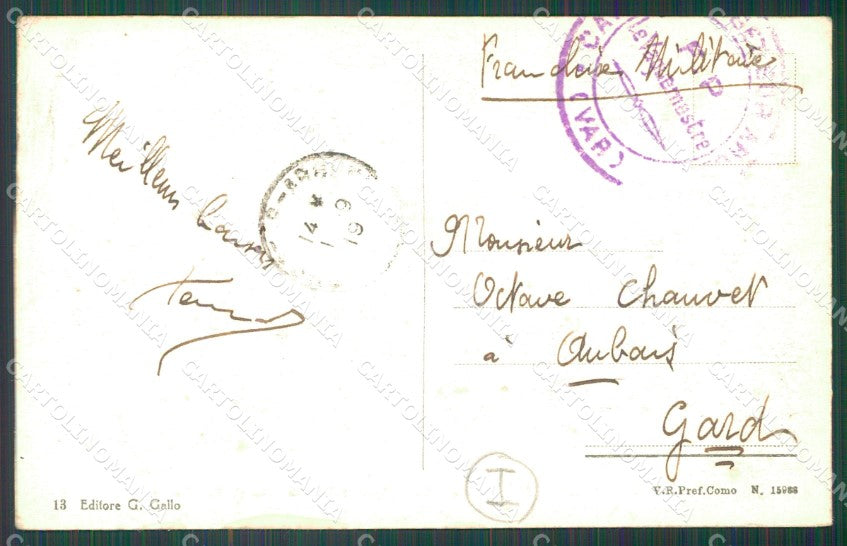 Franchise Militaire
(VAR)
Vaguemestre
Meilleurs baisers
14 *
1
19
Monsieur
Octave Chauvet
à Aubais
Gard
I
13 Editore G. Gallo
V.R.Pref.Como N. 15988
CARTOLINOMANIA